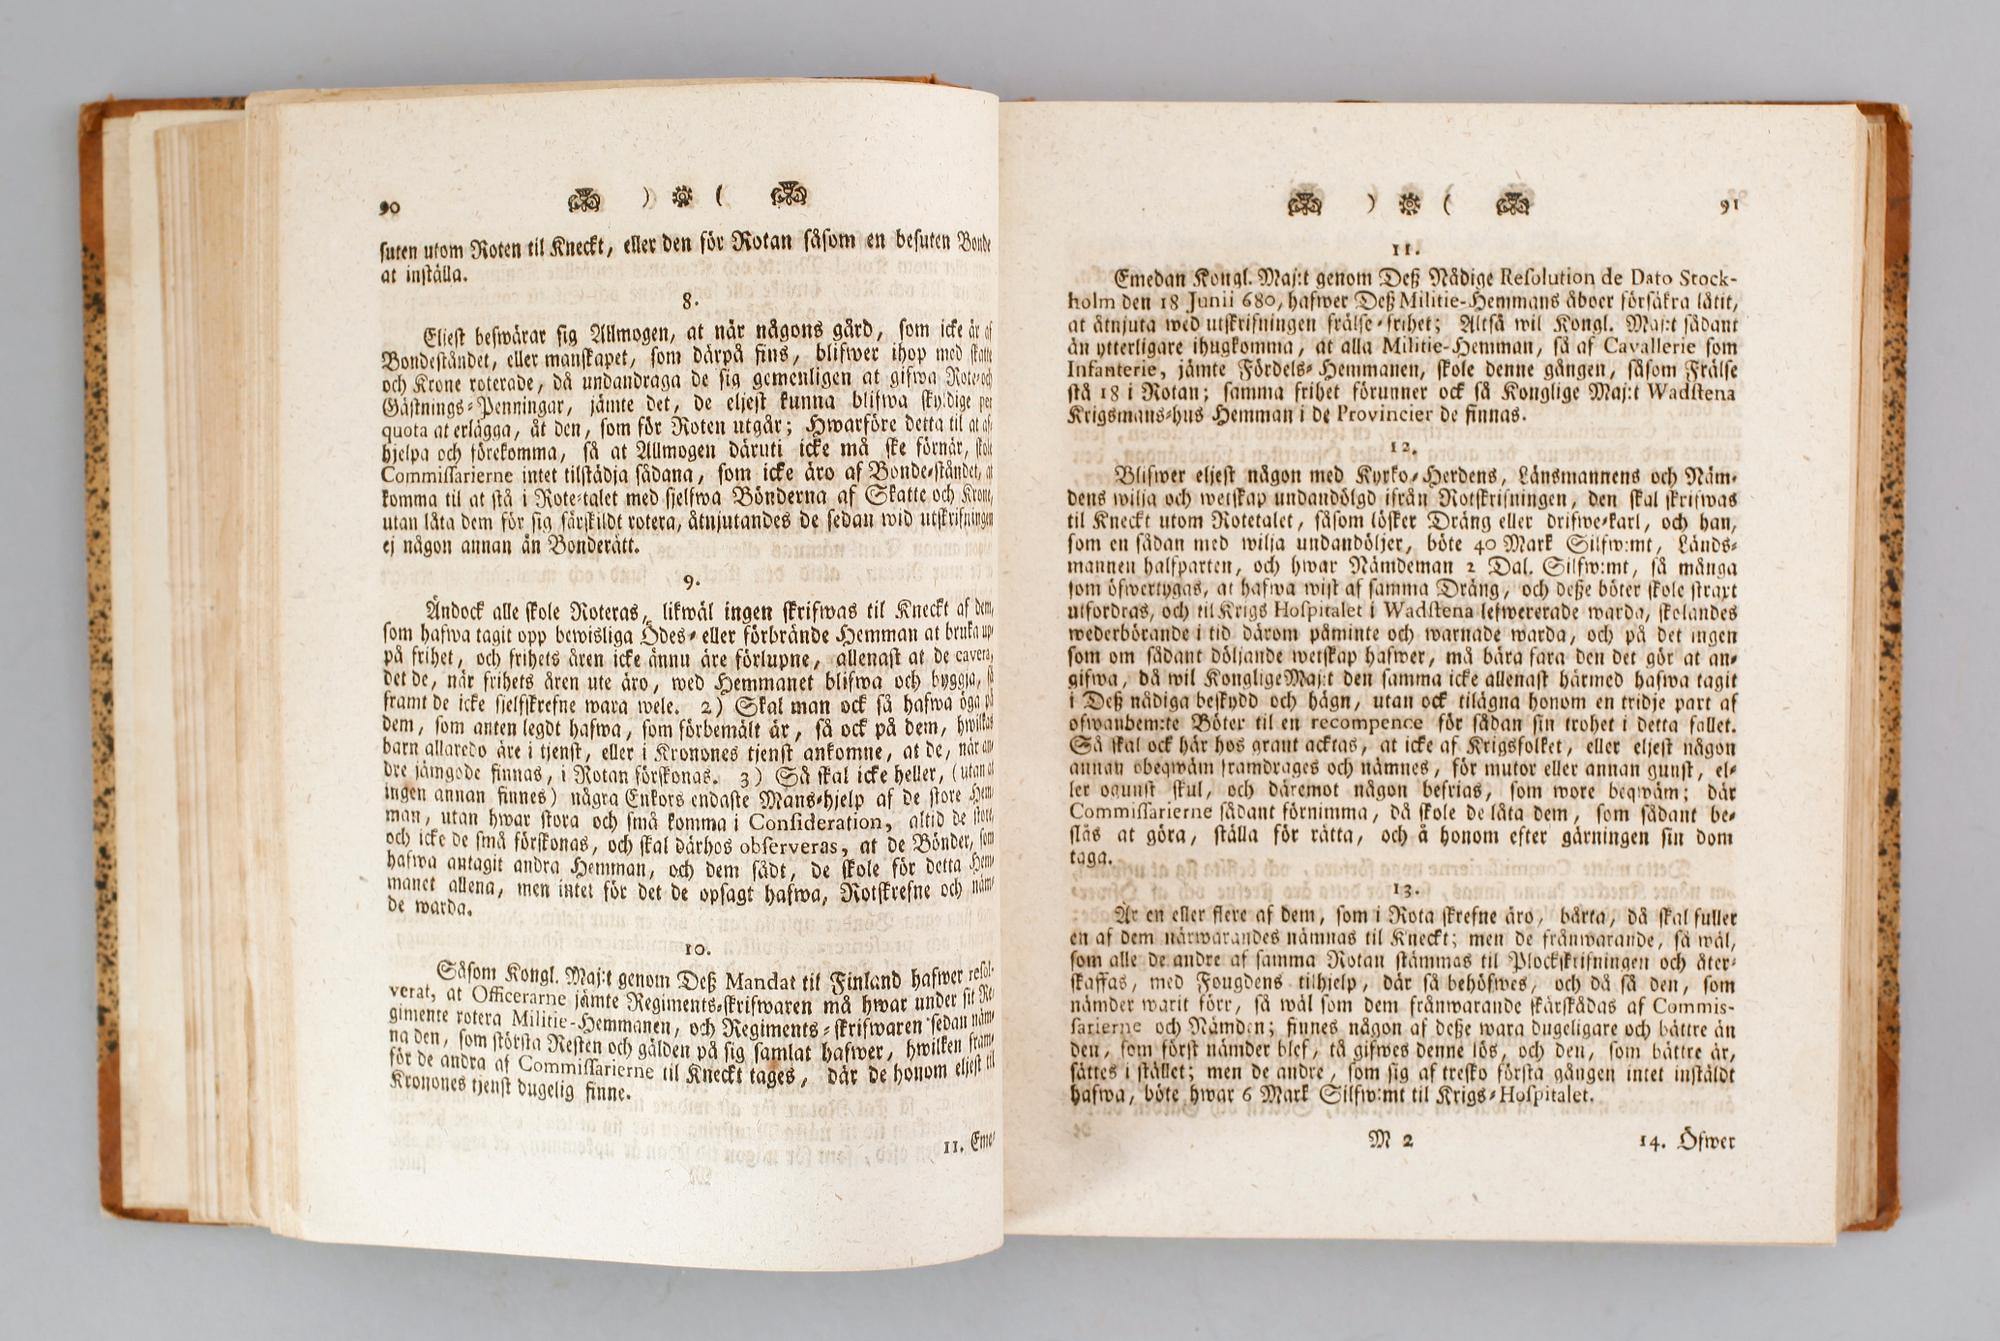 90 ) (
suten utom Roten til Kneckt, eller den för Rotan såsom en besuten Bonde
at inställa.
8.
Eljest beswärar sig Allmogen, at när någons gård, som icke är af
Bondeståndet, eller manskapet, som därpå fins, blifwer ihop med skatte
och Krone roterade, då undandraga de sig gemenligen at gifwa Rote-och
Gästnings-Penningar, jämte det, de eljest kunna blifwa skyldige per
quota at erlägga, åt den, som för Roten utgår; Hwarföre detta til at af-
hjelpa och förekomma, så at Allmogen däruti icke må ske förnär, skole
Commissarierne intet tilstädja sådana, som icke äro af Bonde-ståndet, at
komma til at stå i Rote-talet med sjelfwa Bönderna af Skatte och Krono,
utan låta dem för sig särskildt rotera, åtnjutandes de sedan wid utskrifningen
ej någon annan än Bonderätt.
9.
Ändock alle skole Roteras, likwäl ingen skrifwas til Kneckt af dem,
som hafwa tagit opp bewisliga Ödes- eller förbrände Hemman at bruka up-
på frihet, och frihets åren icke ännu äre förlupne, allenast at de cavera,
det de, när frihets åren ute äro, wed Hemmanet blifwa och byggja, så
framt de icke sjelfskrefne wara wele. 2) Skal man ock så hafwa öga på
dem, som anten legdt hafwa, som förbemält är, så ock på dem, hwilkas
barn allaredo äre i tjenst, eller i Kronones tjenst ankomne, at de, när an-
dre jämgode finnas, i Rotan förskonas. 3) Så skal icke heller, (utan at
ingen annan finnes) några Enkors endaste Mans-hjelp af de store Hem-
man, utan hwar stora och små komma i Consideration, altid de store,
och icke de små förskonas, och skal därhos observeras, at de Bönder, som
hafwa antagit andra Hemman, och dem sådt, de skole för detta Hem-
manet allena, men intet för det de opsagt hafwa, Rotskrefne och näm-
de warda.
10.
Såsom Kongl. Maj:t genom Deß Mandat til Finland hafwer resol-
verat, at Officerarne jämte Regiments-skrifwaren må hwar under sit Re-
gimente rotera Militie-Hemmanen, och Regiments-skrifwaren sedan näm-
na den, som största Resten och gälden på sig samlat hafwer, hwilken fram-
för de andra af Commissarierne til Kneckt tages, där de honom eljest til
Kronones tjenst dugelig finne.
11. Eme-
) ( 91
11.
Emedan Kongl. Maj:t genom Deß Nådige Resolution de Dato Stock-
holm den 18 Junii 680, hafwer Deß Militie-Hemmans åboer försäkra låtit,
at åtnjuta wed utskrifningen frälse-frihet; Altså wil Kongl. Maj:t sådant
än ytterligare ihugkomma, at alla Militie-Hemman, så af Cavallerie som
Infanterie, jämte Fördels-Hemmanen, skole denne gången, såsom Frälse
stå 18 i Rotan; samma frihet förunner ock så Konglige Maj:t Wadstena
Krigsmans-hus Hemman i de Provincier de finnas.
12.
Blifwer eljest någon med Kyrko-Herdens, Länsmannens och Näm-
dens wilja och wetskap undandölgd ifrån Rotskrifningen, den skal skrifwas
til Kneckt utom Rotetalet, såsom lösker Dräng eller drifwe-karl, och han,
som en sådan med wilja undandöljer, böte 40 Mark Silfw:mt, Länds-
mannen halfparten, och hwar Nämdeman 2 Dal. Silfw:mt, så många
som öfwertygas, at hafwa wist af samma Dräng, och deße böter skole straxt
utfordras, och til Krigs Hospitalet i Wadstena lefwererade warda, skolandes
wederbörande i tid därom påminte och warnade warda, och på det ingen
som om sådant döljande wetskap hafwer, må bära fara den det gör at an-
gifwa, då wil Konglige Maj:t den samma icke allenast härmed hafwa tagit
i Deß nådiga beskydd och hägn, utan ock tilägna honom en tridje part af
ofwanbem:te Böter til en recompence för sådan sin trohet i detta fallet.
Så skal ock här hos grant acktas, at icke af Krigsfolket, eller eljest någon
annan obeqwäm framdrages och nämnes, för mutor eller annan gunst, el-
ler ogunst skul, och däremot någon befrias, som wore beqwäm; där
Commissarierne sådant förnimma, då skole de låta dem, som sådant be-
slås at göra, ställa för rätta, och å honom efter gärningen sin dom
taga.
13.
Är en eller flere af dem, som i Rota skrefne äro, bårta, då skal fuller
en af dem närwarandes nämnas til Kneckt; men de frånwarande, så wäl,
som alle de andre af samma Rotan stämmas til Plockskrifningen och åter-
skaffas, med Fougdens tilhjelp, där så behöfwes, och då så den, som
nämder warit förr, så wäl som dem frånwarande skärskådas af Commis-
sarierne och Nämden; finnes någon af deße wara dugeligare och bättre än
den, som först nämder blef, tå gifwes denne lös, och den, som bättre är,
sättes i stället; men de andre, som sig af tresko första gången intet inställdt
hafwa, böte hwar 6 Mark Silfw:mt til Krigs-Hospitalet.
M 2 14. Öfwer